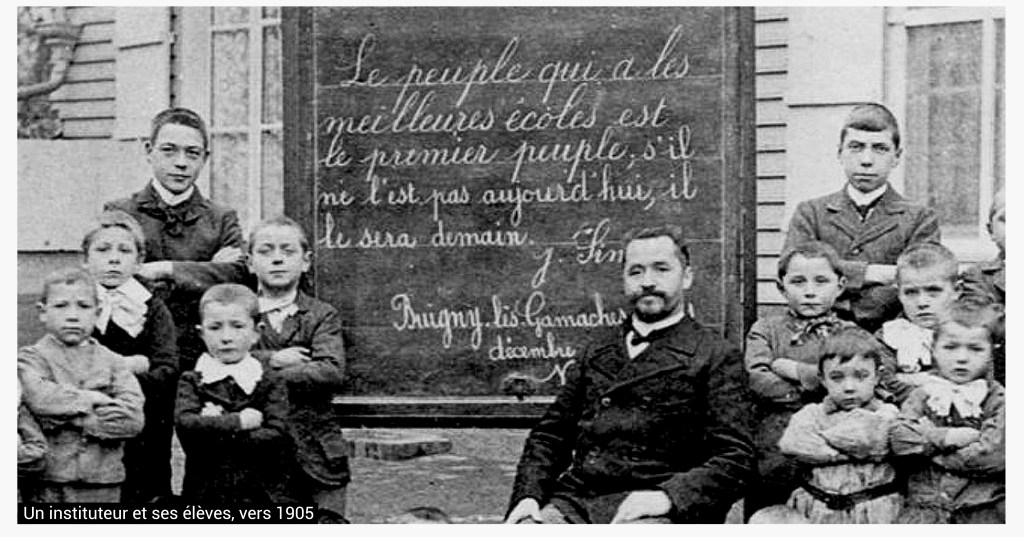 Le peuple qui a les
meilleures écoles est
le premier peuple, s'il
ne l'est pas aujourd'hui, il
le sera demain.
J.
lès-Gamaches
décembre
Un instituteur et ses élèves, vers 1905